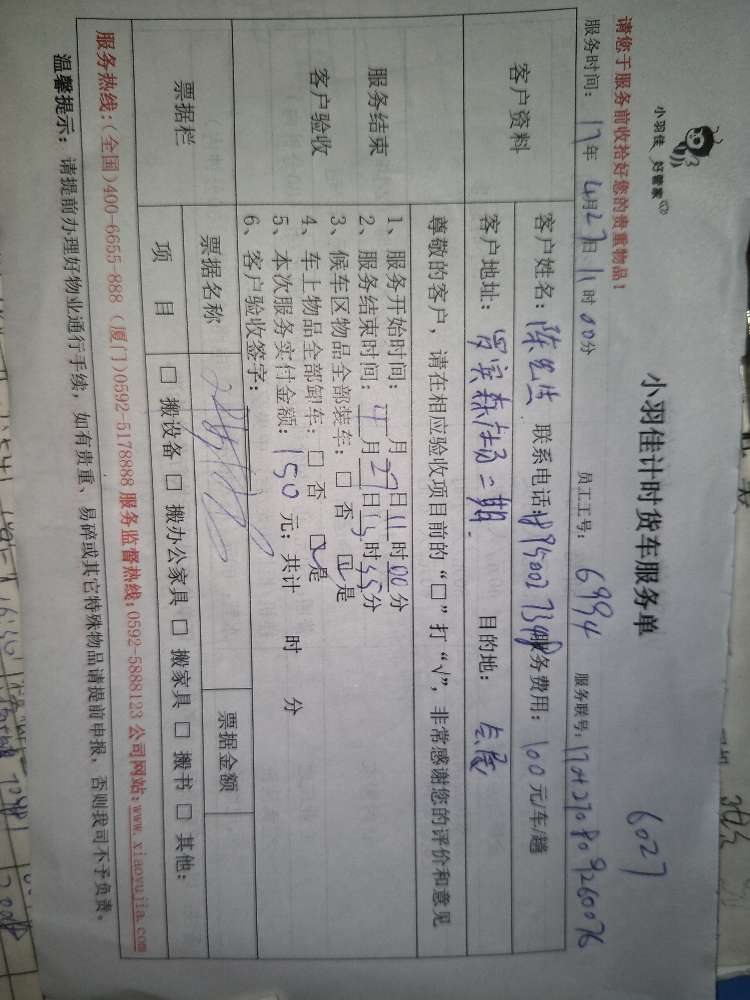 小羽佳 好管家
小羽佳计时货车服务单
6027
请您于服务前收拾好您的贵重物品！
服务时间：17年4月27日11时00分 员工工号：6994 服务联号：
客户资料
客户姓名：陈 联系电话： 服务费用：100元/车/趟
客户地址： 二期 目的地：
服务结束
客户验收
尊敬的客户，请在相应验收项目前的“□”打“√”，非常感谢您的评价和意见
1、服务开始时间： 月 日11时00分
2、服务结束时间：4月27日13时35分
3、候车区物品全部装车：□ 否 ☑是
4、车上物品全部卸车：□ 否 ☑是
5、本次服务实付金额：150元；共计 时 分
6、客户验收签字：
票据栏
票据名称 票据金额
项 目 □ 搬设备 □ 搬办公家具 □ 搬家具 □ 搬书 □ 其他：
服务热线：(全国)400-6655-888 (厦门)0592-5178888 服务监督热线：0592-5888123 公司网站：www.xiaoyujia.com
温馨提示：请提前办理好物业通行手续，如有贵重、易碎或其它特殊物品请提前申报，否则我司不予负责。